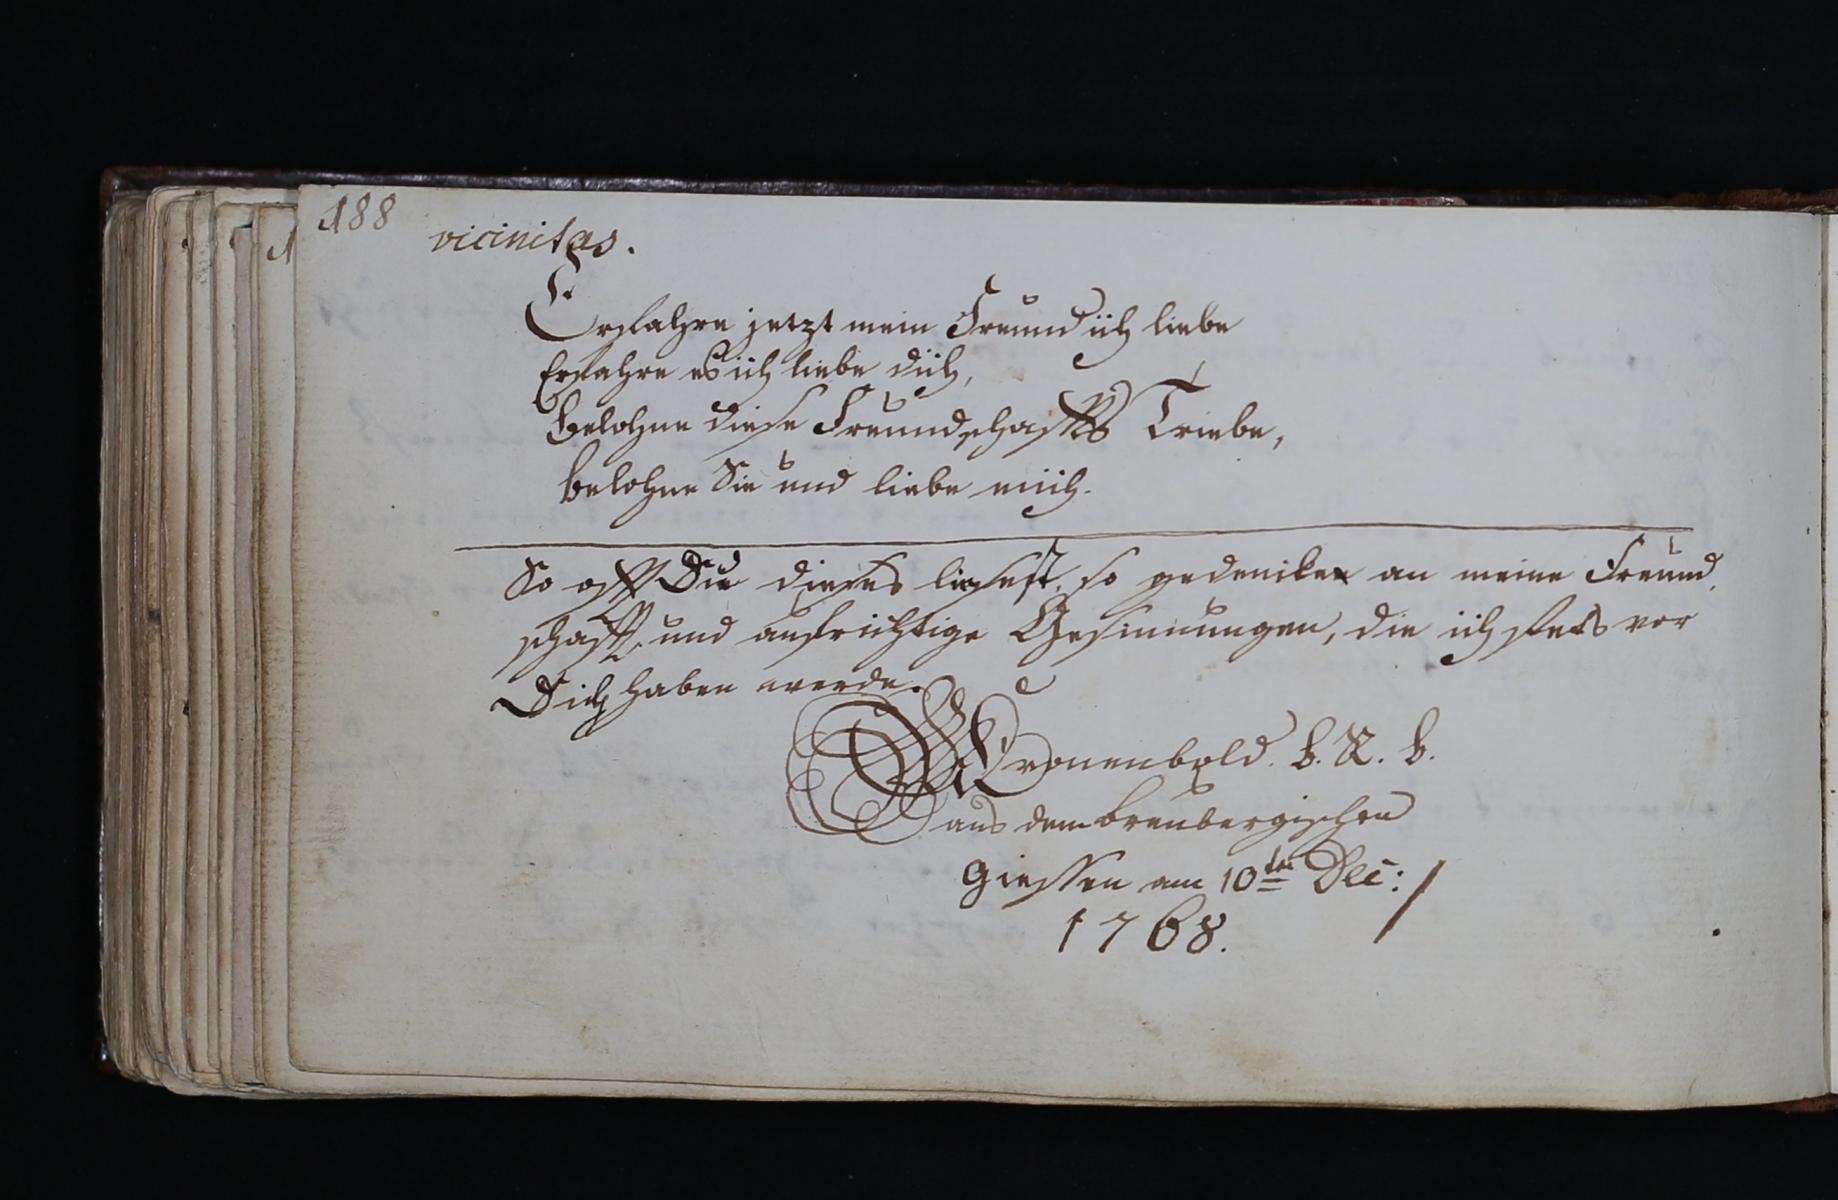 188
vicinitas.
Erfahre jetzt mein Freund ich liebe
Erfahre es ich liebe dich,
Belohne diese Freundschaffts Triebe,
Belohne Sie und liebe mich.
So offt Du dieses liesest, so gedencke an meine Freund
schafft, und aufrichtige Gesinnungen, die ich stets vor
Dich haben werde.
Cronenbold. B. R. B.
aus dem Breubergischen
Giessen am 10ten Dec:
1768.